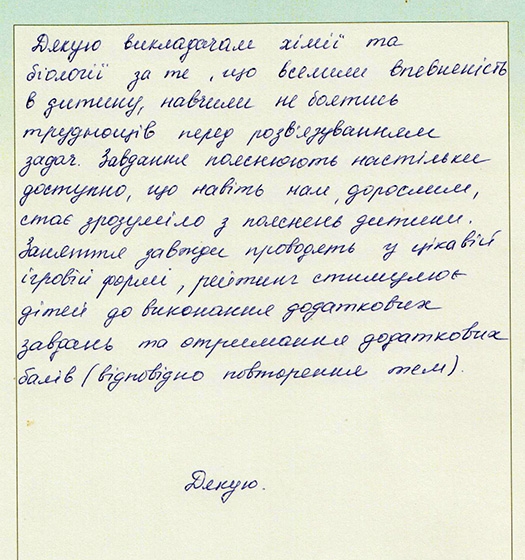 Дякую викладачам хімії та
біології за те, що вселили впевненість
в дитину, навчили не боятись
труднощів перед розв'язуванням
задач. Завдання пояснюють настільки
доступно, що навіть нам, дорослим,
стає зрозуміло з пояснень дитини.
Заняття завжди проводять у цікавій
ігровій формі, рейтинг стимулює
дітей до виконання додаткових
завдань та отримання додаткових
балів (відповідно повторення тем).
Дякую.